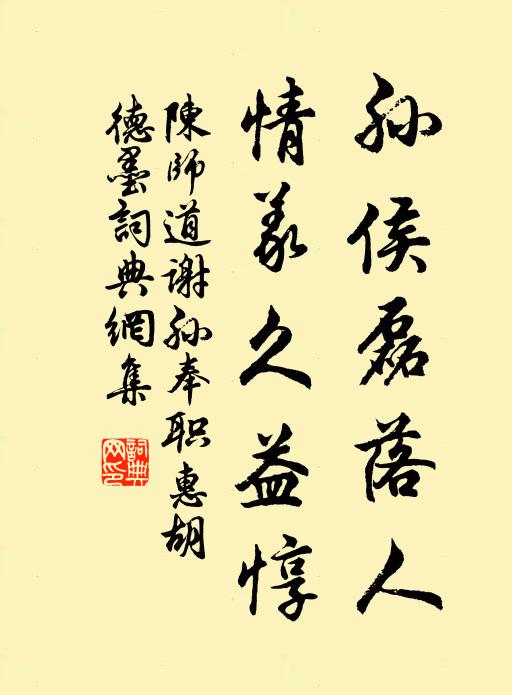 孙侯磊落人
情义久益惇
陳師道謝孙奉职惠胡
德墨詞典網集
詞典网印